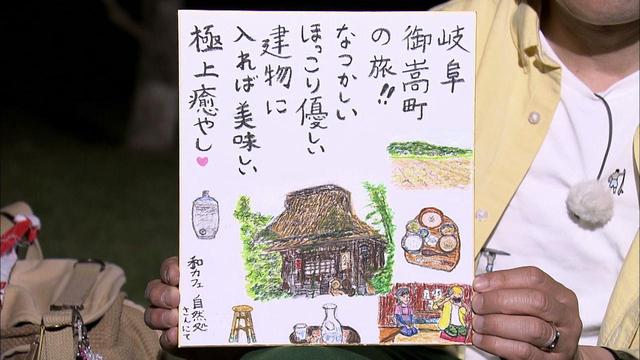 岐阜
御嵩町
の旅!!
なつかしい
ほっこり優しい
建物に
入れば美味しい
極上癒やし♥
和カフェ 自然処
さんにて